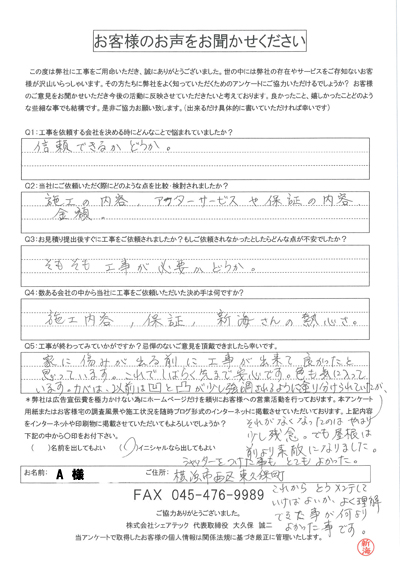 お客様のお声をお聞かせください
この度は弊社に工事をご用命いただき、誠にありがとうございました。世の中には弊社の存在やサービスをご存知ないお客
様が沢山いらっしゃいます。その方たちに弊社をよく知っていただくためのアンケートにご協力いただけるでしょうか? お客様
のご意見をお聞かせいただき今後の活動に反映させていただきたいと考えております。良かったこと、嬉しかったことどのよう
な些細な事でも結構です。是非ご協力お願い致します。(出来るだけ具体的に書いていただければ幸いです)
Q1:工事を依頼する会社を決める時にどんなことで悩まれていましたか?
信頼できるかどうか。
Q2:当社にご依頼いただく際にどのような点を比較・検討されましたか?
施工の内容、アフターサービスや保証の内容、
金額。
Q3:お見積り提出後すぐに工事をご依頼されましたか?もしご依頼されなかったとしたらどんな点が不安でしたか?
そもそも工事が必要かどうか。
Q4:数ある会社の中から当社に工事をご依頼いただいた決め手は何ですか?
施工内容、保証、新海さんの熱心さ。
Q5:工事が終わってみていかがですか?忌憚のないご意見を頂戴できましたら幸いです。
家に傷みが出る前に工事が出来て良かったと
思っています。これでしばらく先まで安心です。色も気に入って
います。カベは、以前は凹と凸が少し強調されるように塗り分けられていたが、
それがなくなったのはやはり
少し残念。でも屋根は
前より素敵になりました。
シャッターをつけた事もとてもよかった。
これからどうメンテして
いけばよいか、よく理解
できた事が何より
よかった事です。
※弊社は広告宣伝費を極力かけない為にホームページだけを頼りにお客様への営業活動を行っております。本アンケート
用紙またはお客様宅の調査風景や施工状況を随時ブログ形式のインターネットに掲載させていただいております。上記内容
をインターネットや印刷物に掲載させていただいてもよろしいでしょうか?
下記の中から○印をお付け下さい。
( )名前を出してもよい (○)イニシャルなら出してもよい
お名前: A 様 ご住所: 横浜市西区東久保町
FAX 045-476-9989
ご協力ありがとうございました。
株式会社シェアテック 代表取締役 大久保 誠二
当アンケートで取得したお客様の個人情報は関係法規に基づき厳正に管理いたします。
新海